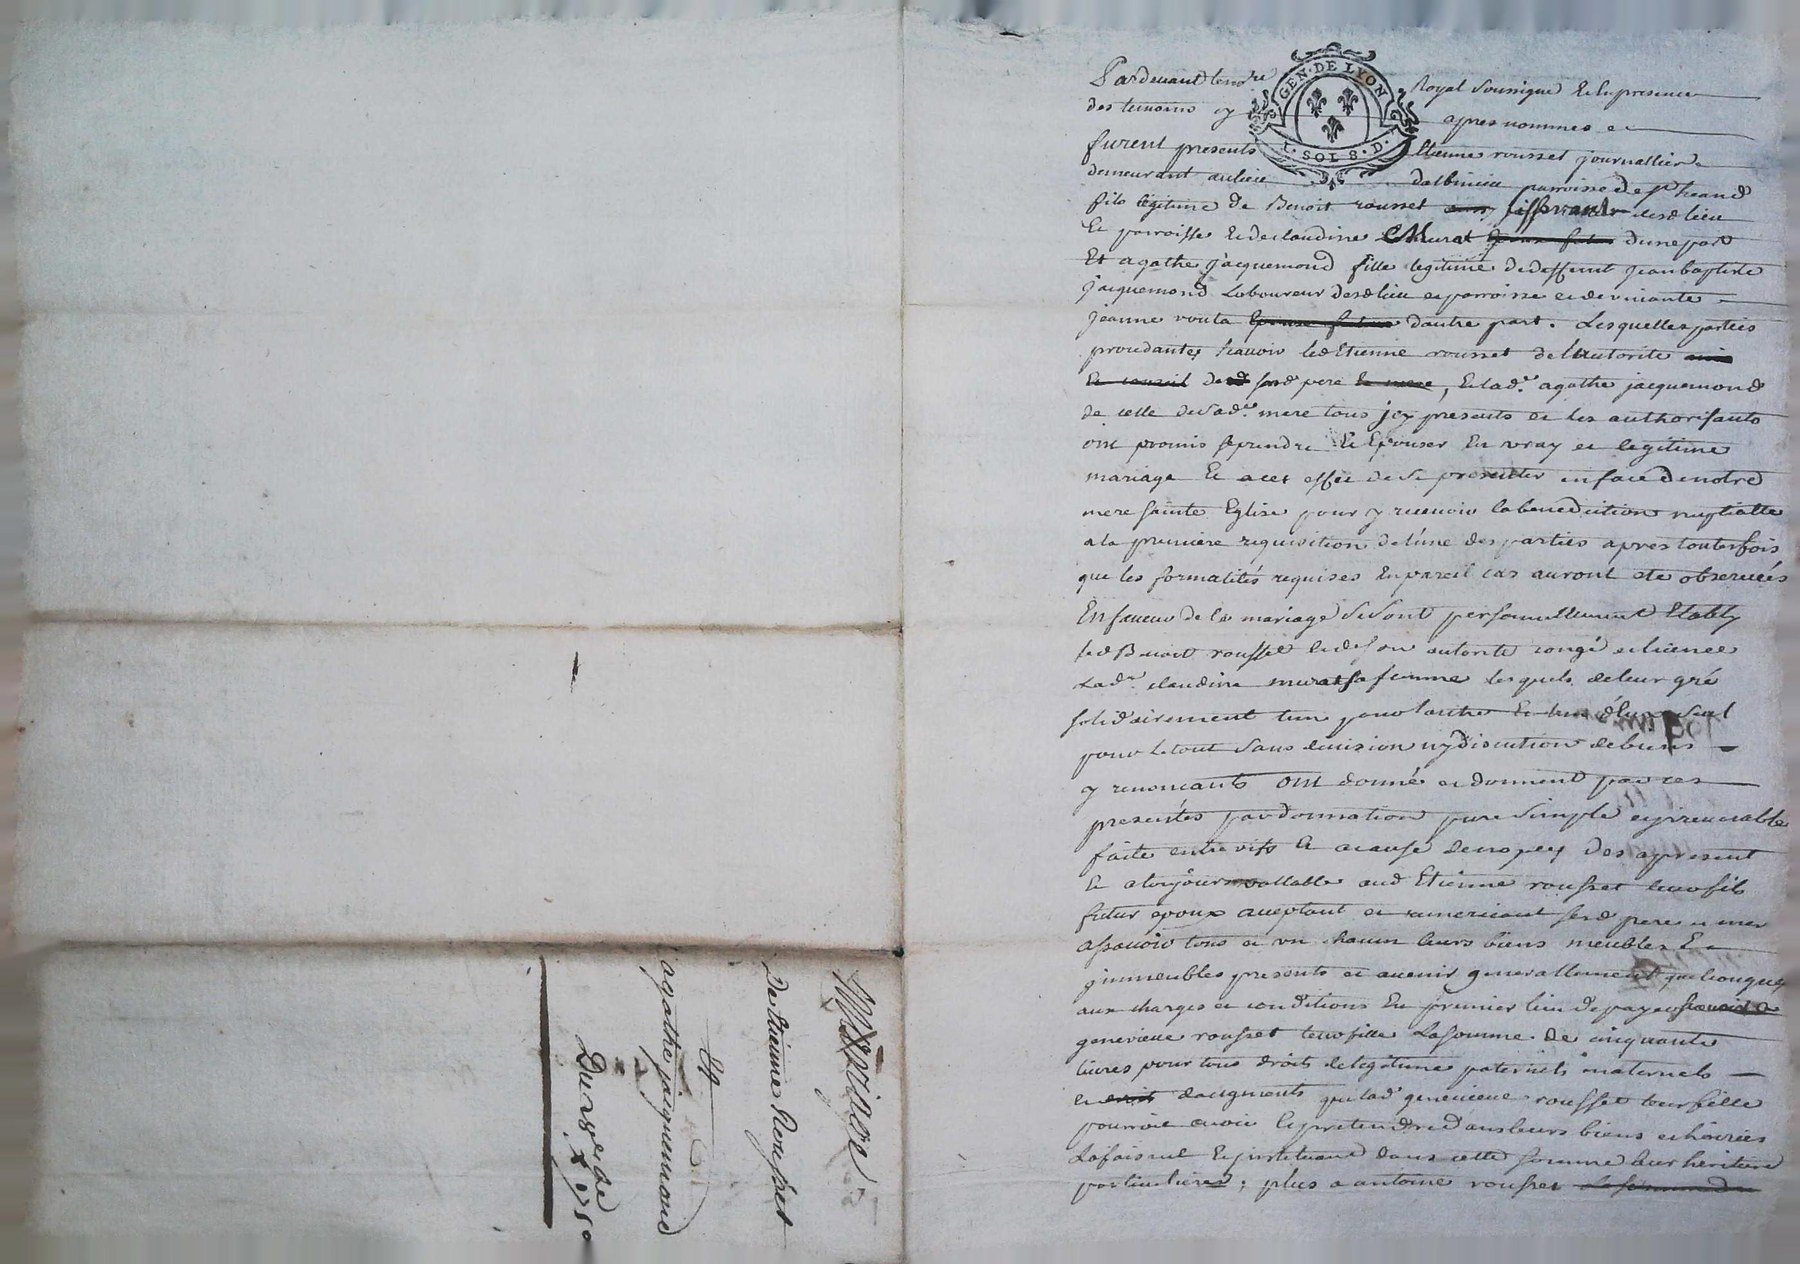 GEN·DE LYON
1·SOL 8·D·
Pardevant le no.re Royal soussigné Et En presence
des temoins cy apres nommes et
furent presents Etienne rousset journallier
demeurant au lieu dalbinieu parroisse de
fils legitime de Benoit rousset dud lieu
Et parroisse Et de claudine Murat dune part
Et agathe jacquemond fille legitime de deffunt jean baptiste
jacquemond Laboureur dud lieu et parroisse et de vivante
jeanne vouta dautre part. Lesquelles parties
procedantes scavoir led Etienne rousset de l'autorite
de sesd pere, Et lad.e agathe jacquemond
de celle de sad.e mere tous jcy presents et les authorisants
ont promis se prendre Et Epouser En vray et legitime
mariage Et a cet effet de se presenter en face de notre
mere sainte Eglise pour y recevoir la benediction nuptialle
a la premiere requisition de l'une des parties apres toutesfois
que les formalités requises En pareil cas auront ete observées
En faveur de ce mariage se sont personnellement Etably
led Benoit rousset Et de son autorité congé et licence
Lad.e claudine murat sa femme lesquels de leur gré
solidairement l'un pour lautre Et l'un d'eux seul
pour le tout sans division ny discution de biens
y renoncants ont donné et donnent par ces
presentes par donnation pure simple et jrrevocable
faite entre vifs Et a cause de nopces Des apresent
Et a toujours vallable aud Etienne rousset leur fils
futur epoux acceptant et remerciant sesd pere et mere
ascavoir tous et un chacun leurs biens meubles Et
jmmeubles presents et avenir generallement quelconques
aux charges et conditions En premier lieu de payer
genevieve rousset leur fille La somme de cinquante
livres pour tous droits de legitime paternels maternels
et daugments que lad genevieve rousset leur fille
pourroit avoir Et pretendre Dans leurs biens et hoiries
La faisant Et jnstituant dans cette somme leur heritiere
particuliere; plus a antoine rousset
Mariage
De Etienne Rousset
Et
agathe jacquemond
Du 28e xbre 1780